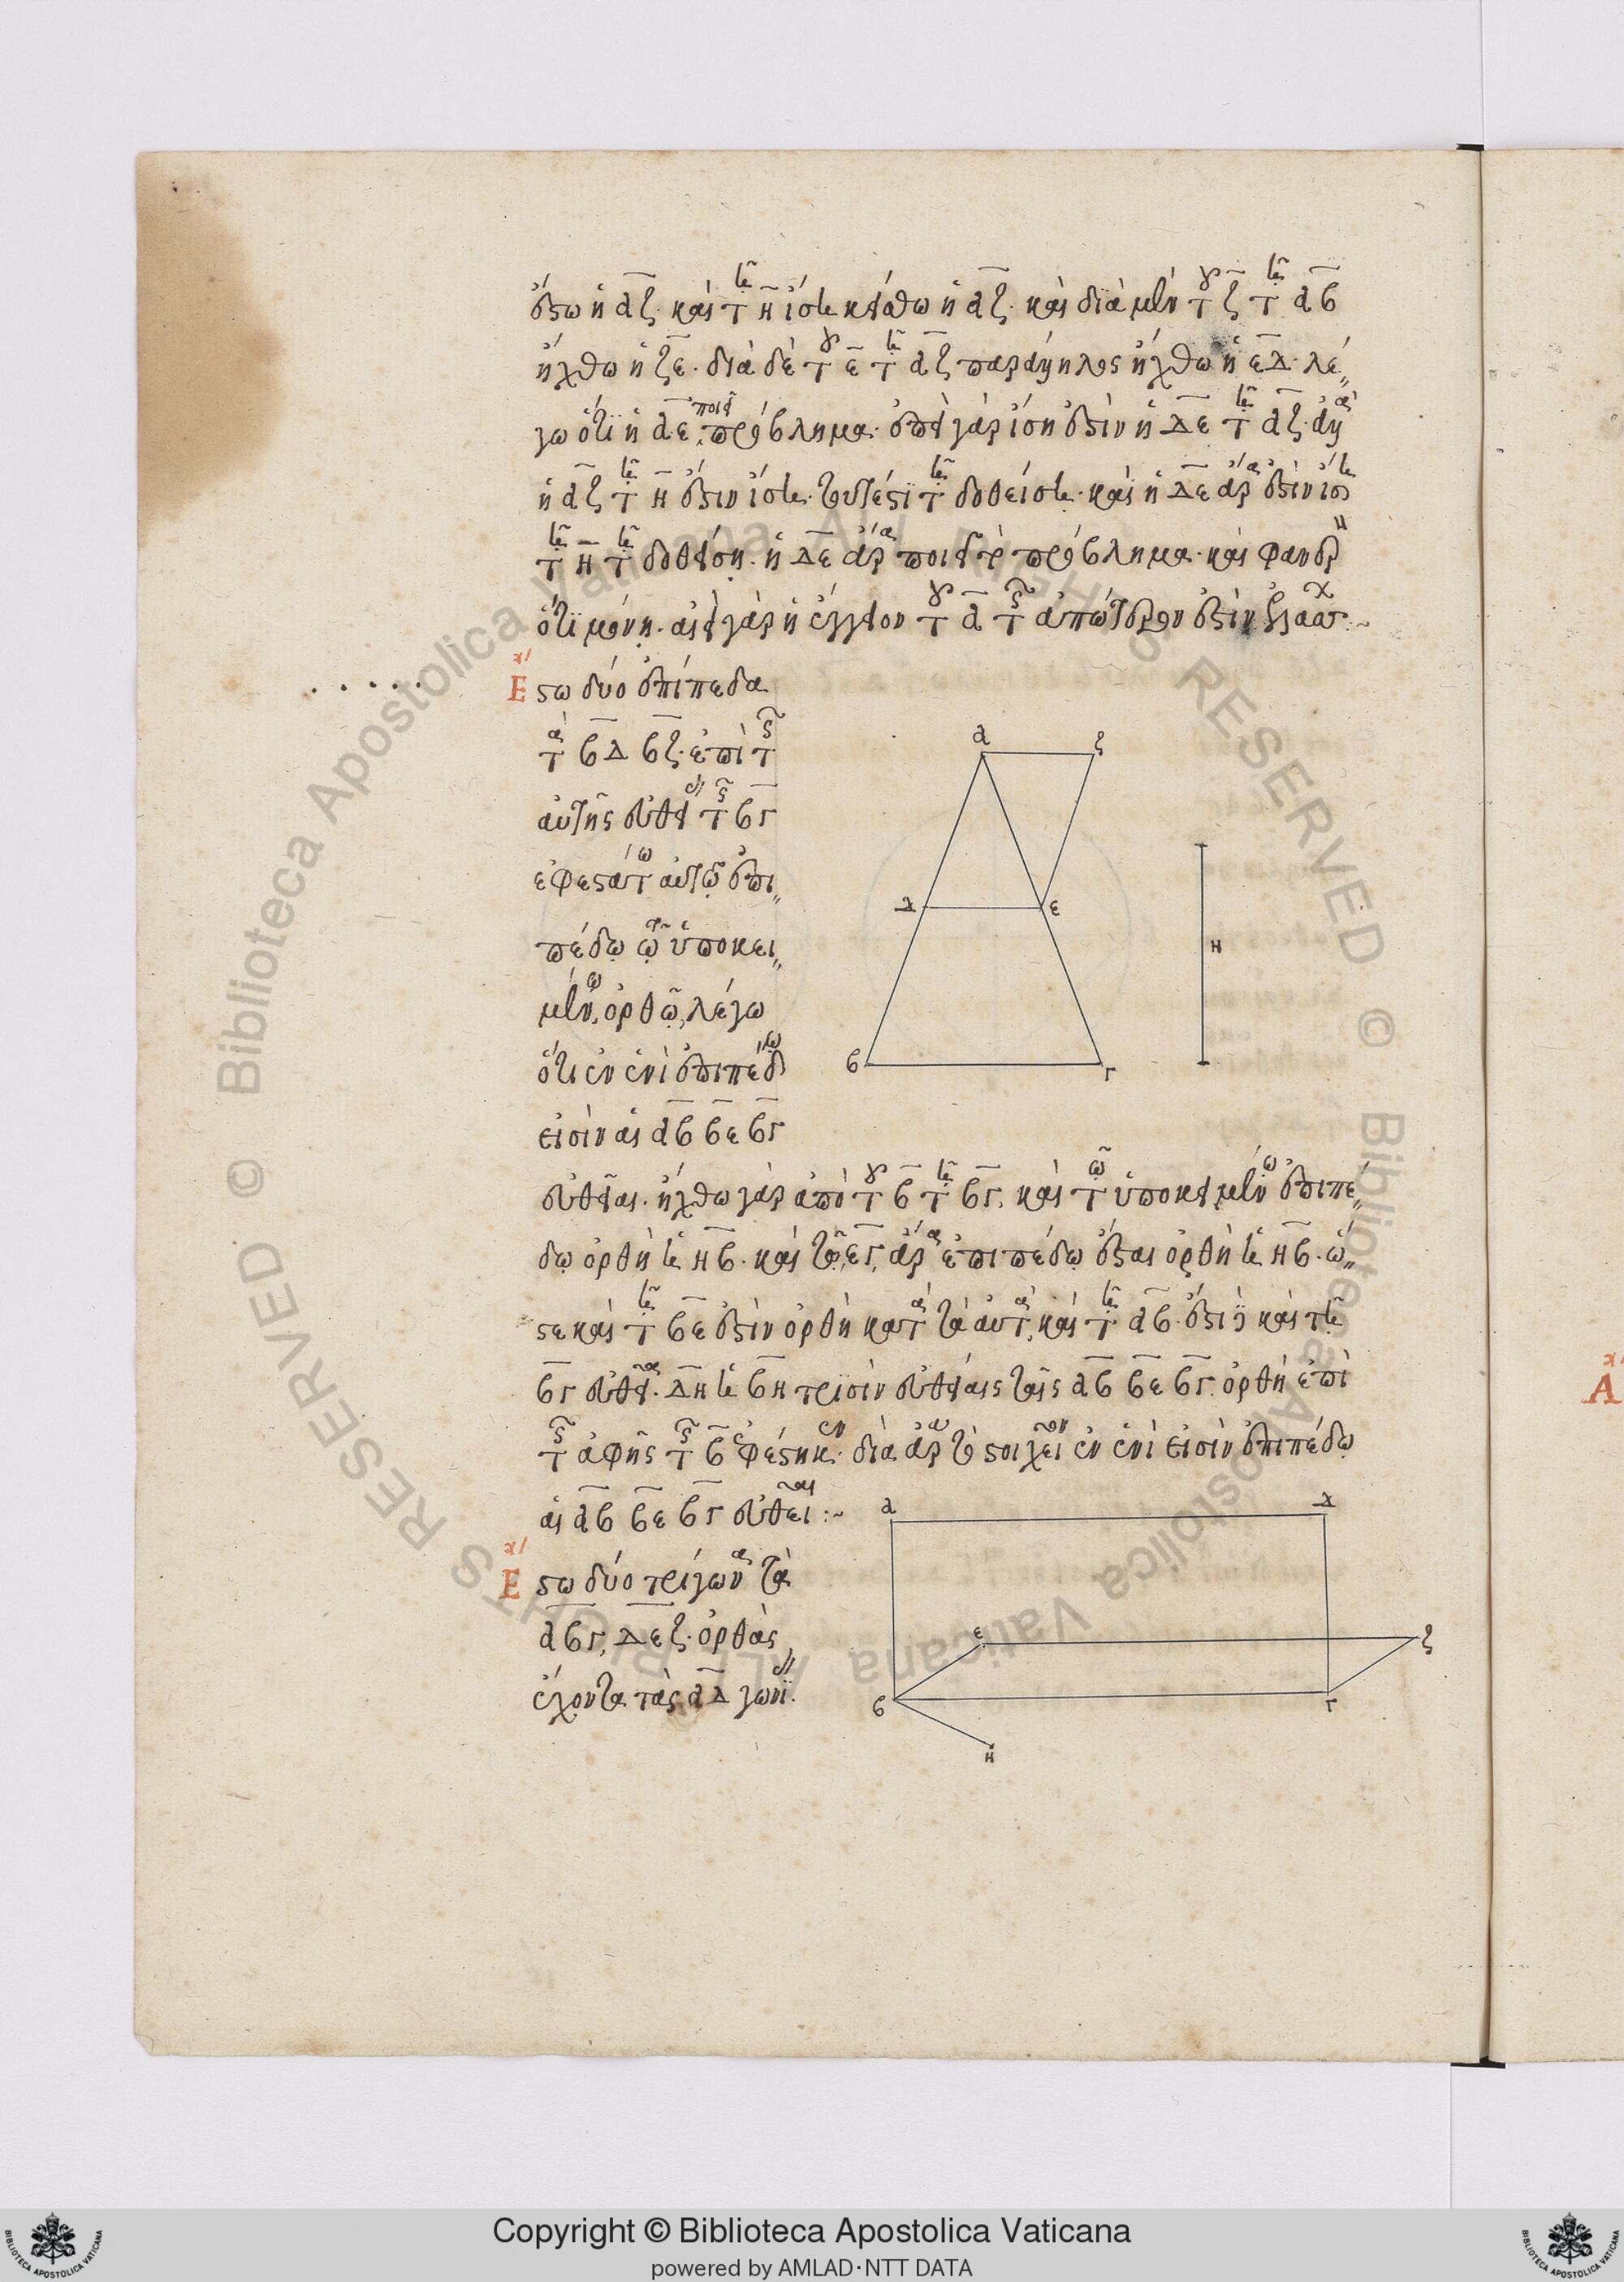 ἔστω ἡ αζ. καὶ τῇ η ἴση κείσθω ἡ αζ. καὶ διὰ μὲν τοῦ ζ τῇ αβ
ἤχθω ἡ ζε. διὰ δὲ τοῦ ε τῇ αζ παράλληλος ἤχθω ἡ εδ. λέ
γω ὅτι ἡ δε ποιεῖ πρόβλημα. ἐπεὶ γὰρ ἴση ἐστὶν ἡ δε τῇ αζ. ἀλλὰ
ἡ αζ τῇ η ἐστιν ἴση. τουτέστι τῇ δοθείσῃ. καὶ ἡ δε ἄρα ἐστὶν ἴση
τῇ η τῇ δοθείσῃ. ἡ δε ἄρα ποιεῖ τὸ πρόβλημα. καὶ φανερὸν
ὅτι μόνη. αἰεὶ γὰρ ἡ ἔγγιον τοῦ α τῆς ἀπώτερον ἐστὶν ἐλάσσων
Εστω δύο ἐπίπεδα
τὰ βδ βζ. ἐπὶ τῆς
αὐτῆς εὐθείας τῆς βγ
ἐφεστάτω αὐτῷ ἐπι
πέδῳ τῷ ὑποκει
μένῳ, ὀρθῷ, λέγω
ὅτι ἐν ἑνὶ ἐπιπέδῳ
εἰσὶν αἱ αβ βε βγ
εὐθεῖαι. ἤχθω γὰρ ἀπὸ τοῦ β τῇ βγ, καὶ τῷ ὑποκειμένῳ ἐπιπέ
δῳ ὀρθὴ ἡ ηβ. καὶ τῷ, εγ, ἄρα ἐπιπέδῳ ἔσται ὀρθὴ ἡ ηβ. ὥ
στε καὶ τῇ βε ἐστὶν ὀρθὴ κατὰ τὰ αὐτὰ, καὶ τῇ αβ. ἔστι δὲ καὶ τῇ
βγ εὐθείᾳ. δὴ ἡ βη τρισὶν εὐθείαις ταῖς αβ βε βγ. ὀρθὴ ἐπὶ
τῆς ἁφῆς τῆς β ἐφέστηκεν. διὰ ἄρα τὸ στοιχεῖον ἐν ἑνὶ εἰσὶν ἐπιπέδῳ
αἱ αβ βε βγ εὐθεῖαι :~
Εστω δύο τρίγωνα τὰ
αβγ, δεζ. ὀρθὰς
ἔχοντα τὰς α δ γωνίας.
α ζ
δ ε
η
β γ
α δ
ε ζ
β γ
η
Α
Copyright © Biblioteca Apostolica Vaticana
powered by AMLAD·NTT DATA